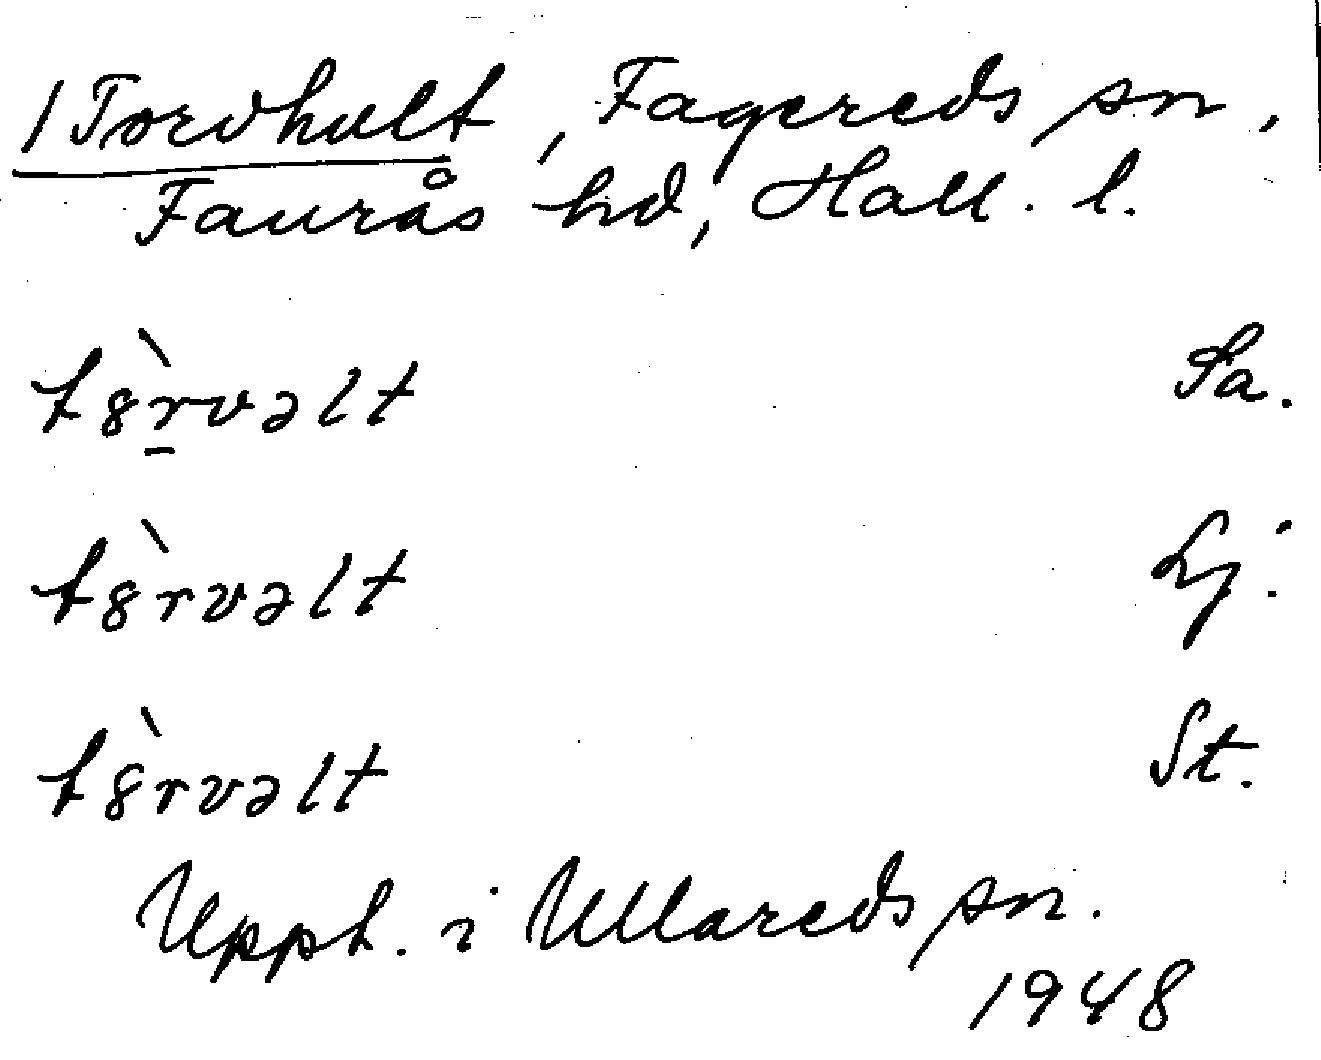 /Tordhult, Fagereds sn,
Faurås hd, Hall. l.
t8̀r̠vəlt Sa.
t8̀rvəlt Lj.
t8̀rvəlt St.
Upph. i Ullareds sn.
1948